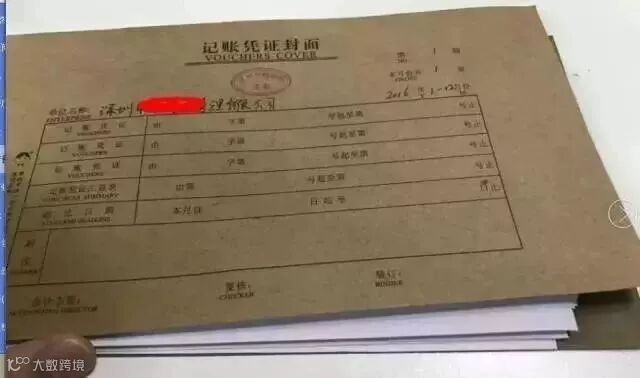 记账凭证封面
VOUCHERS COVER
第 1 册
NO
本月共 1 册
单位名称: 深圳 理有限公司
ENTERPRISE
2016 年 1-12 月份
记账凭证 由 字第 号起至第 号止
VOUCHERS
记账凭证 由 字第 号起至第 号止
VOUCHERS
记账凭证 由 字第 号起至第 号止
VOUCHERS
记账凭证汇总表 由第 号起至第 号止
VOUCHERS SUMMARY
本月自 日起至 日止
附
注
会计主管:
ACCOUNTING DIRECTOR
复核:
CHECKER
装订:
BINDER
大数跨境